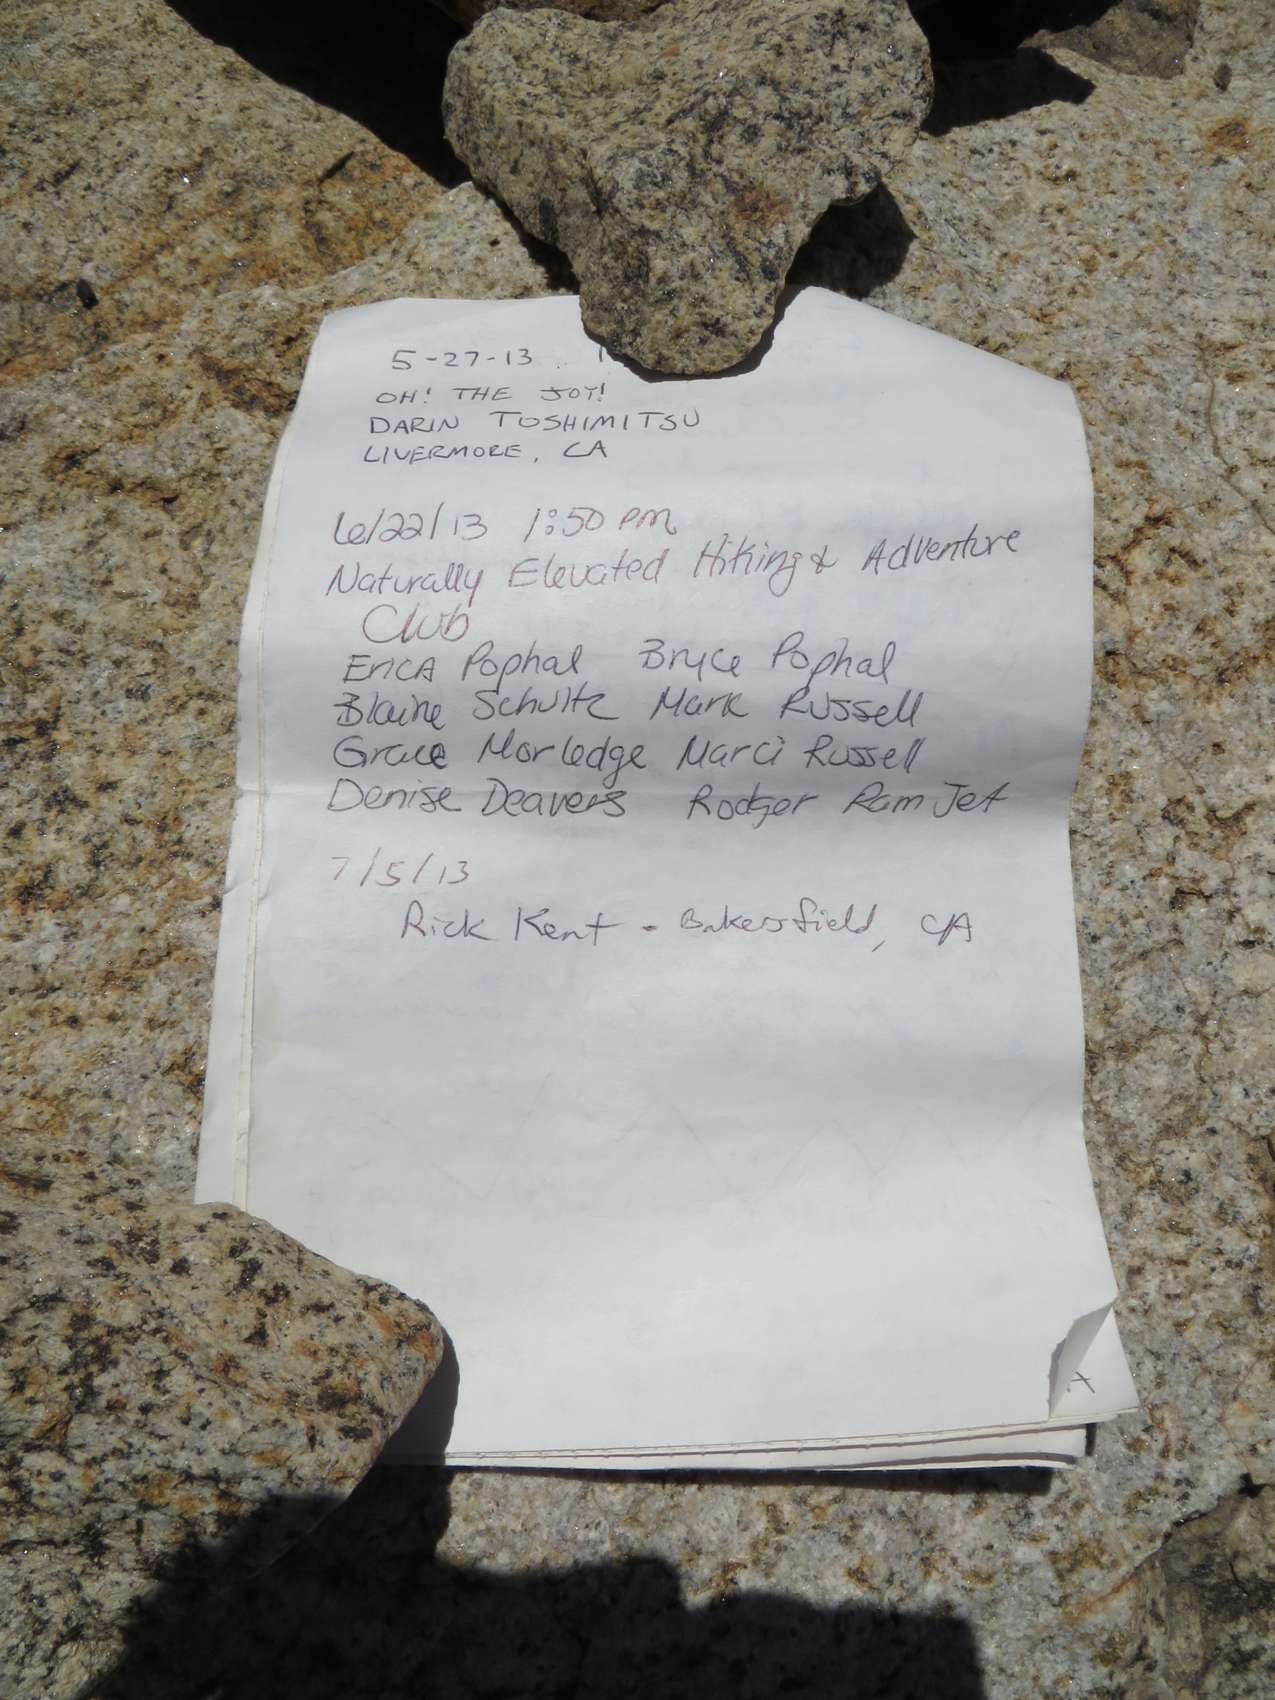 5-27-13
OH! THE JOY!
DARIN TOSHIMITSU
LIVERMORE, CA
6/22/13 1:50 PM
Naturally Elevated Hiking & Adventure
Club
Erica Pophal Bryce Pophal
Blaine Schultz Mark Russell
Grace Morledge Marci Russell
Denise Deavers Rodger Ram Jet
7/5/13
Rick Kent - Bakersfield, CA